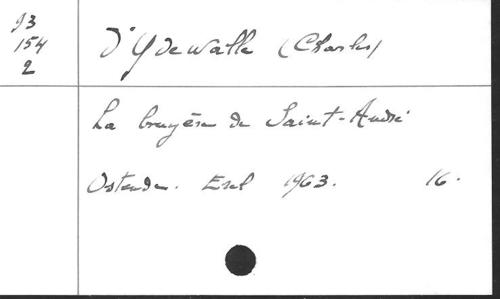 93
154
2
D'Ydewalle (Charles)
La bruyère de Saint-André
Ostende. Erel 1963. 16.